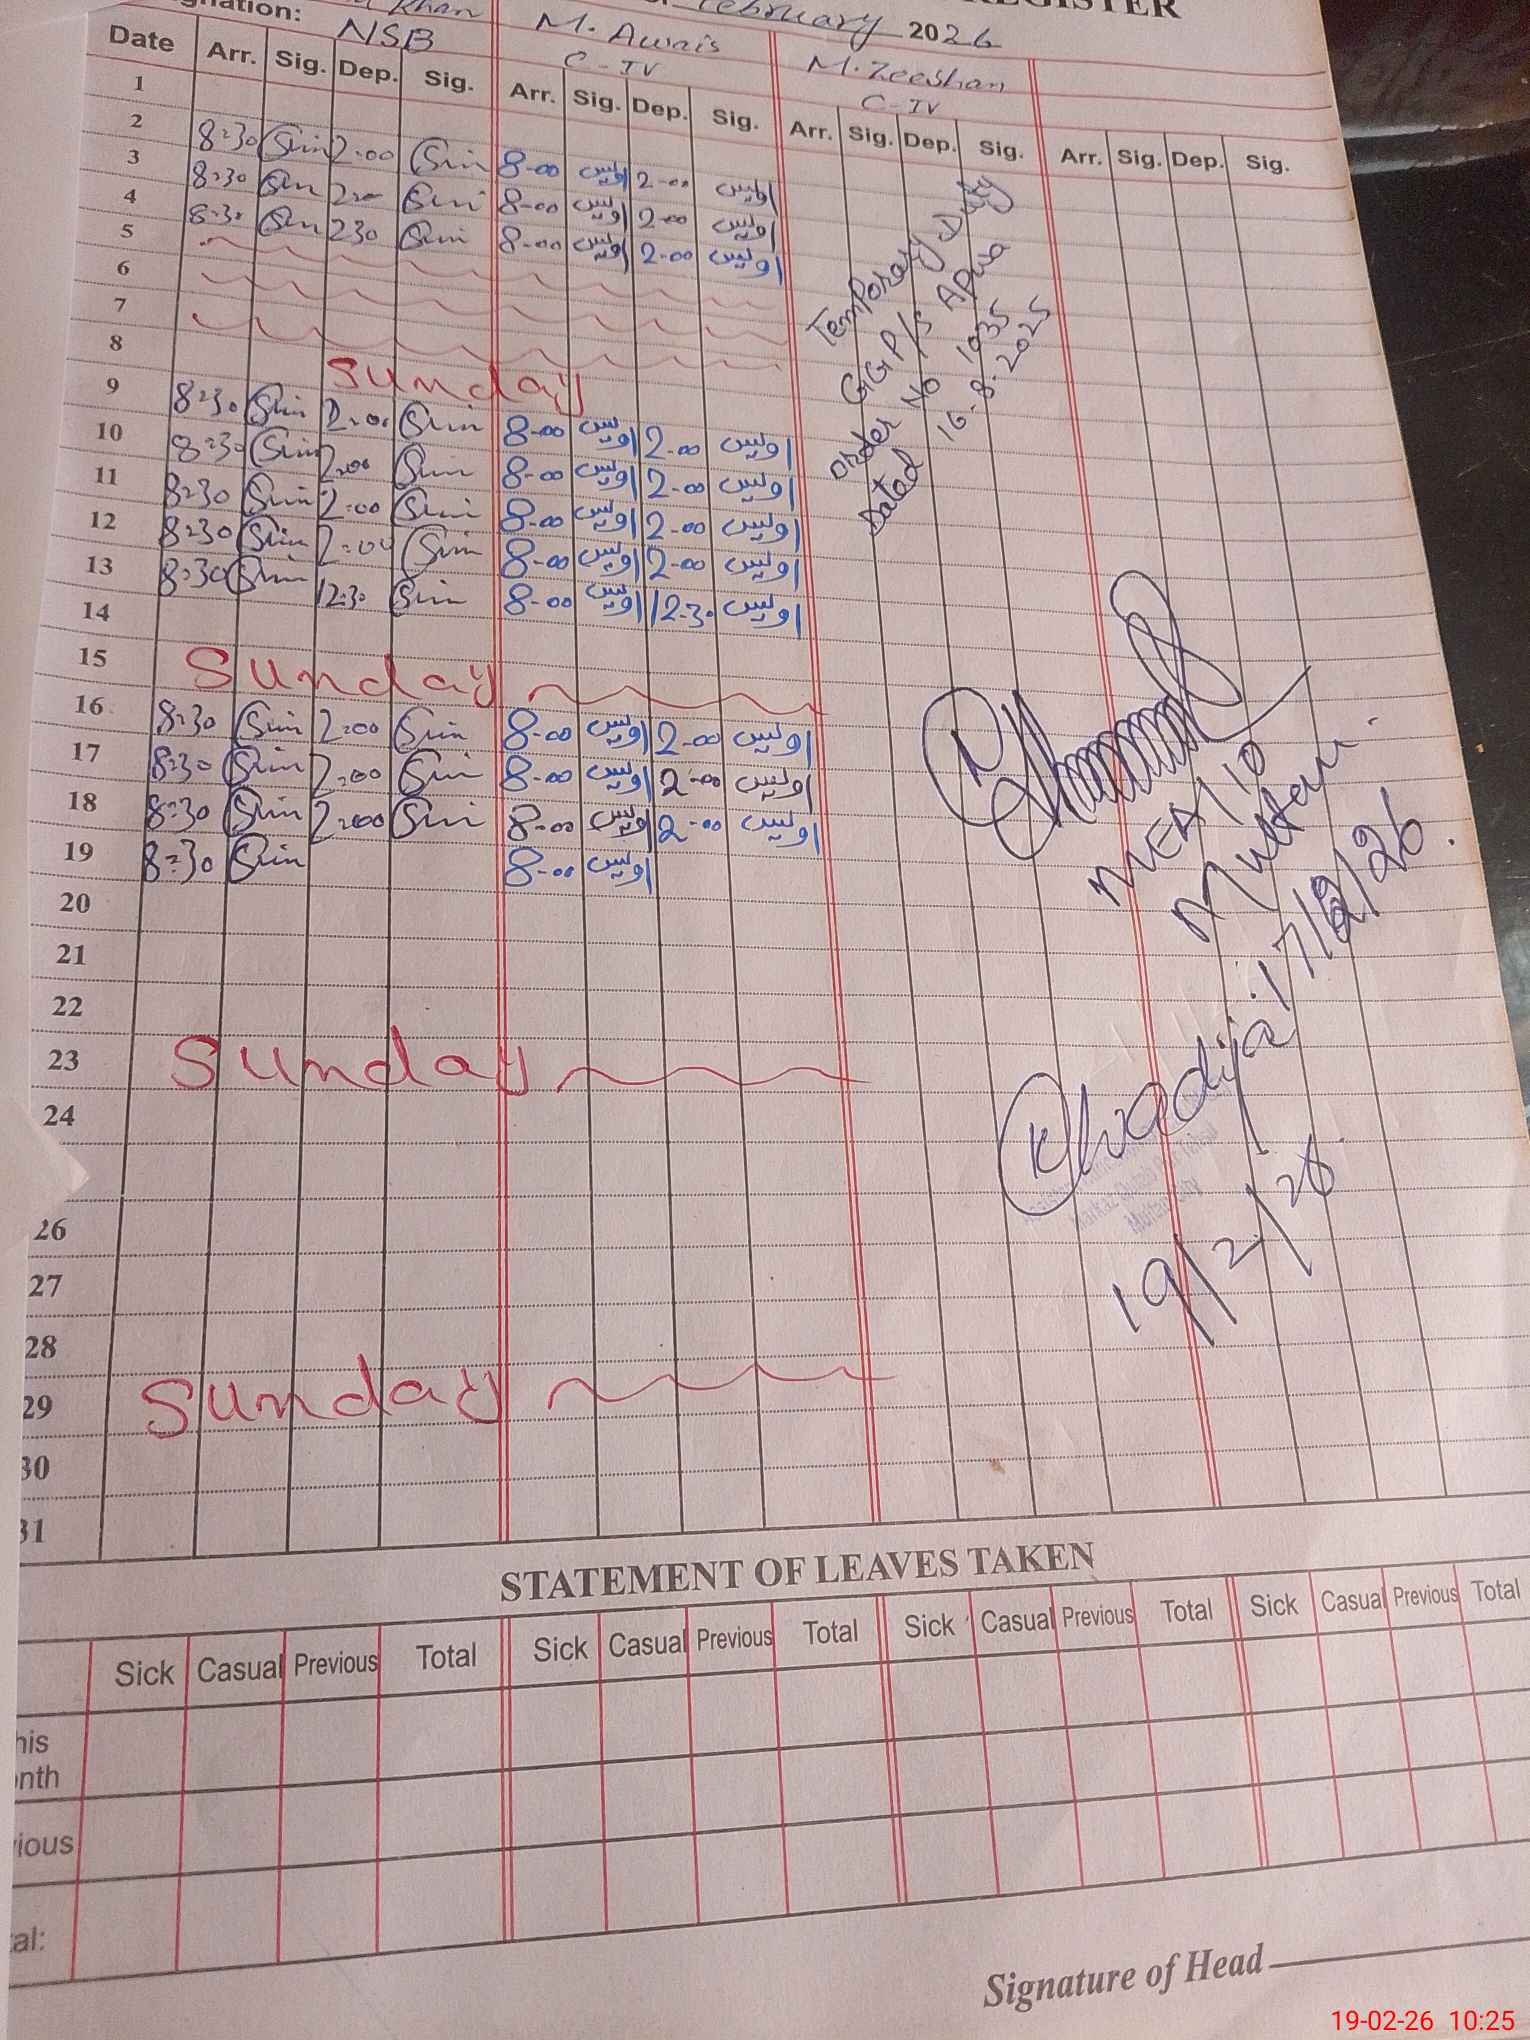 REGISTER
nation: Khan February 2026
NSB M. Awais M. Zeeshan
C-IV C-IV
Date Arr. Sig. Dep. Sig. Arr. Sig. Dep. Sig. Arr. Sig. Dep. Sig. Arr. Sig. Dep. Sig.
1
2 8:30 2:00 8-00 اویس 2-00 اویس
3 8:30 8-00 اویس 2-00 اویس
4 8:30 230 8-00 اویس 2-00 اویس
5
6
7
8 Sunday
9 8:30 2:00 8-00 اویس 2-00 اویس
10 8:30 2:00 8-00 اویس 2-00 اویس
11 8:30 2:00 8-00 اویس 2-00 اویس
12 8:30 2:00 8-00 اویس 2-00 اویس
13 8:30 12:30 8-00 اویس 12-30 اویس
14
15 Sunday
16 8:30 2:00 8-00 اویس 2-00 اویس
17 8:30 2:00 8-00 اویس 2-00 اویس
18 8:30 2:00 8-00 اویس 2-00 اویس
19 8:30 8-00 اویس
20
21
22
23 Sunday
24
26
27
28
29 Sunday
30
31
Temporary Duty
GGP/S
Order No 1035
Dated 16-8-2025
MEA/10
Multan
17/2/26
Khadija
19/2/26
STATEMENT OF LEAVES TAKEN
Sick Casual Previous Total Sick Casual Previous Total Sick Casual Previous Total Sick Casual Previous Total
his
nth
ious
al:
Signature of Head
19-02-26 10:25